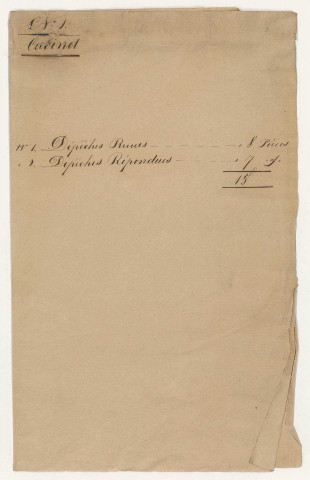 C. N° 1.
Cabinet
N° 1. Dépêches Reçues - - - - - - 8 Pièces
" 2. Dépêches Répondues - - - - - " 7 "
15